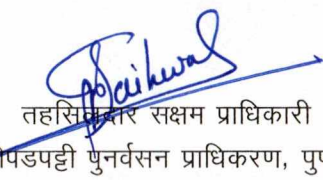 तहसिलदार सक्षम प्राधिकारी
पडपट्टी पुनर्वसन प्राधिकरण, पुण